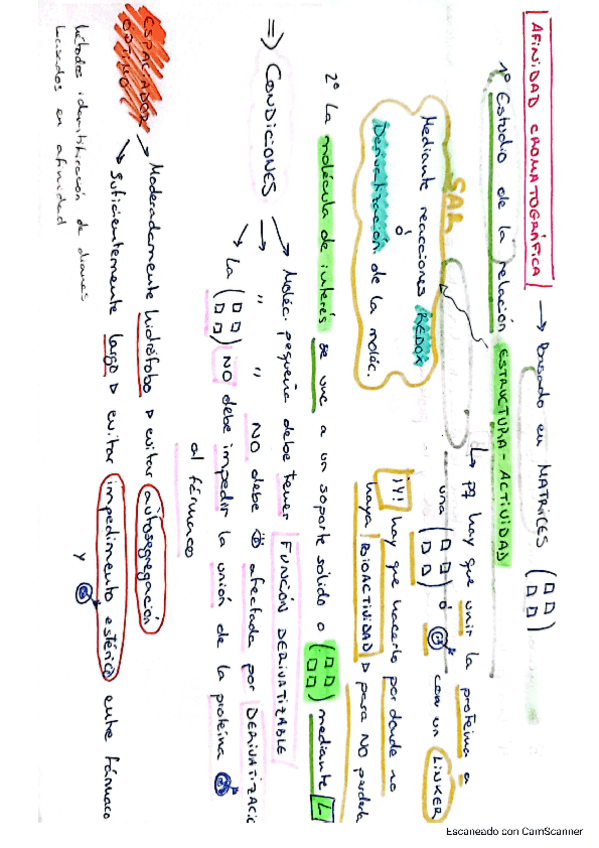 AFINIDAD CROMATOGRÁFICA → Basado en MATRICES
1º Estudio de la relación ESTRUCTURA-ACTIVIDAD
SAR
↳ pq hay que unir la proteína a
una ó con un LINKER
Mediante reacciones REDOX
ó
Derivatización de la moléc.
¡Y! hay que hacerlo por donde no
haya BIOACTIVIDAD para NO perderla
2º La molécula de interés se une a un soporte sólido o mediante L
⇒ CONDICIONES
→ Moléc. pequeña debe tener FUNCIÓN DERIVATIZABLE
→ " " NO debe afectada por DERIVATIZACIÓ
→ La NO debe impedir la unión de la proteína
al fármaco
ESPACIADOR ÓPTIMO
→ Moderadamente hidrófobo evitar autosegregación
→ Suficientemente largo evitar impedimento estérico entre fármaco
y
Métodos identificación de dianas
basados en afinidad
Escaneado con CamScanner